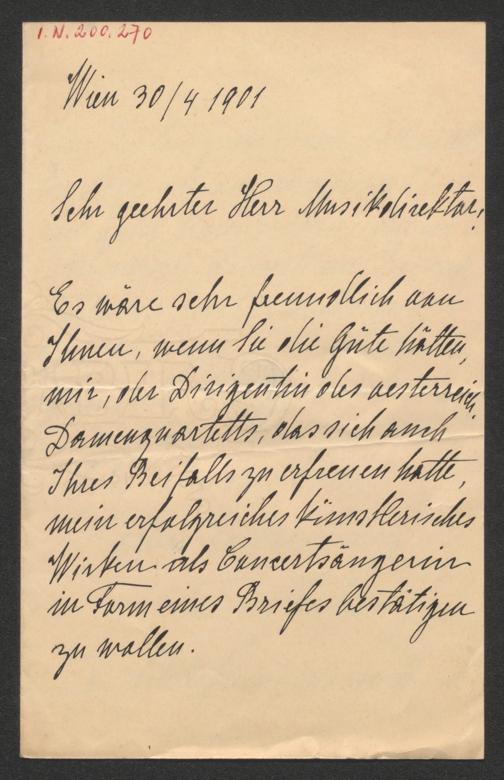 I.N. 200.270
Wien 30/4 1901
Sehr geehrter Herr Musikdirektor!
Es wäre sehr freundlich von
Ihnen, wenn Sie die Güte hätten,
mir, der Dirigentin des oesterreich.
Damenquartetts, das sich auch
Ihres Beifalls zu erfreuen hatte,
mein erfolgreiches künstlerisches
Wirken als Concertsängerin
in Form eines Briefes bestätigen
zu wollen.